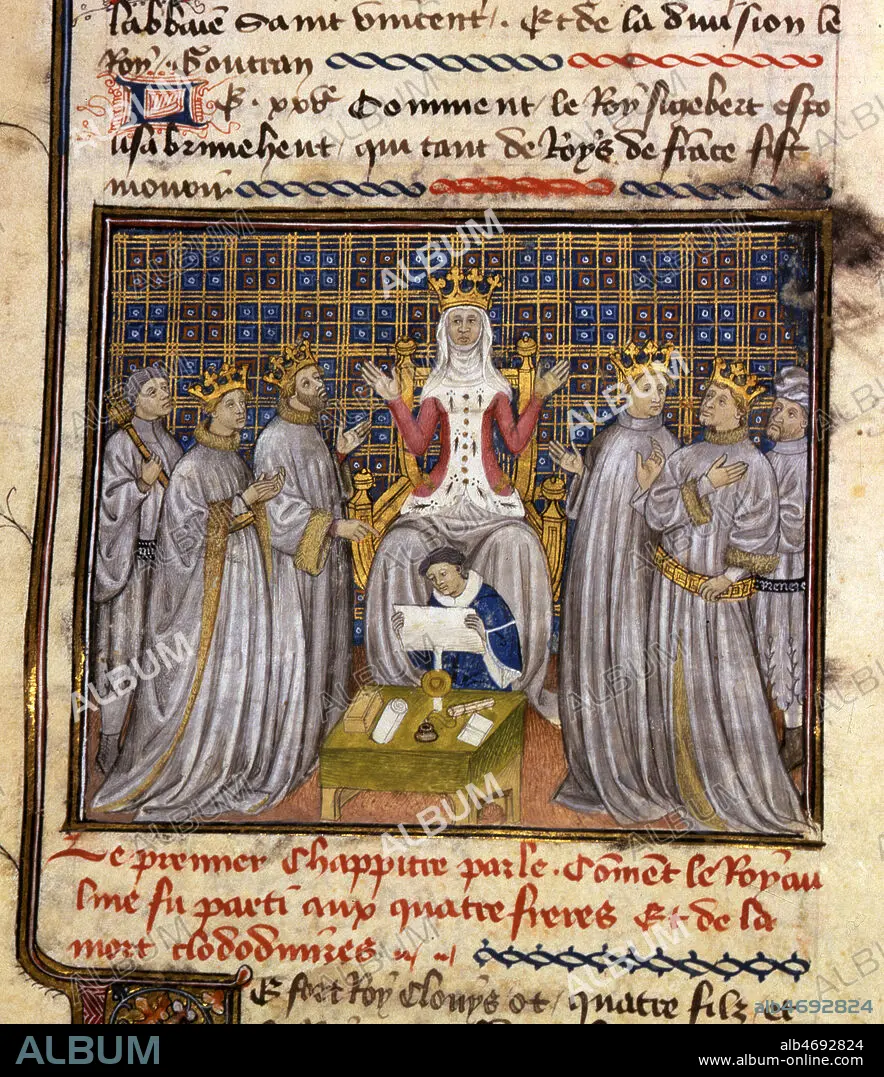 labbaie Saint vincent. Et de la division le
Roy Goutran
Le .xxve. Comment le Roy sigebert espo
usa brunehent, qui tant de Roys de france fist
mourir
Le premier Chappitre parle. Coment le Royau
lme fu parti aux quatre freres Et de la
mort clodomires
Le fort Roy Clouys ot, quatre filz et
ALBUM
alb4692824
ALBUM
alb4692824
www.album-online.com